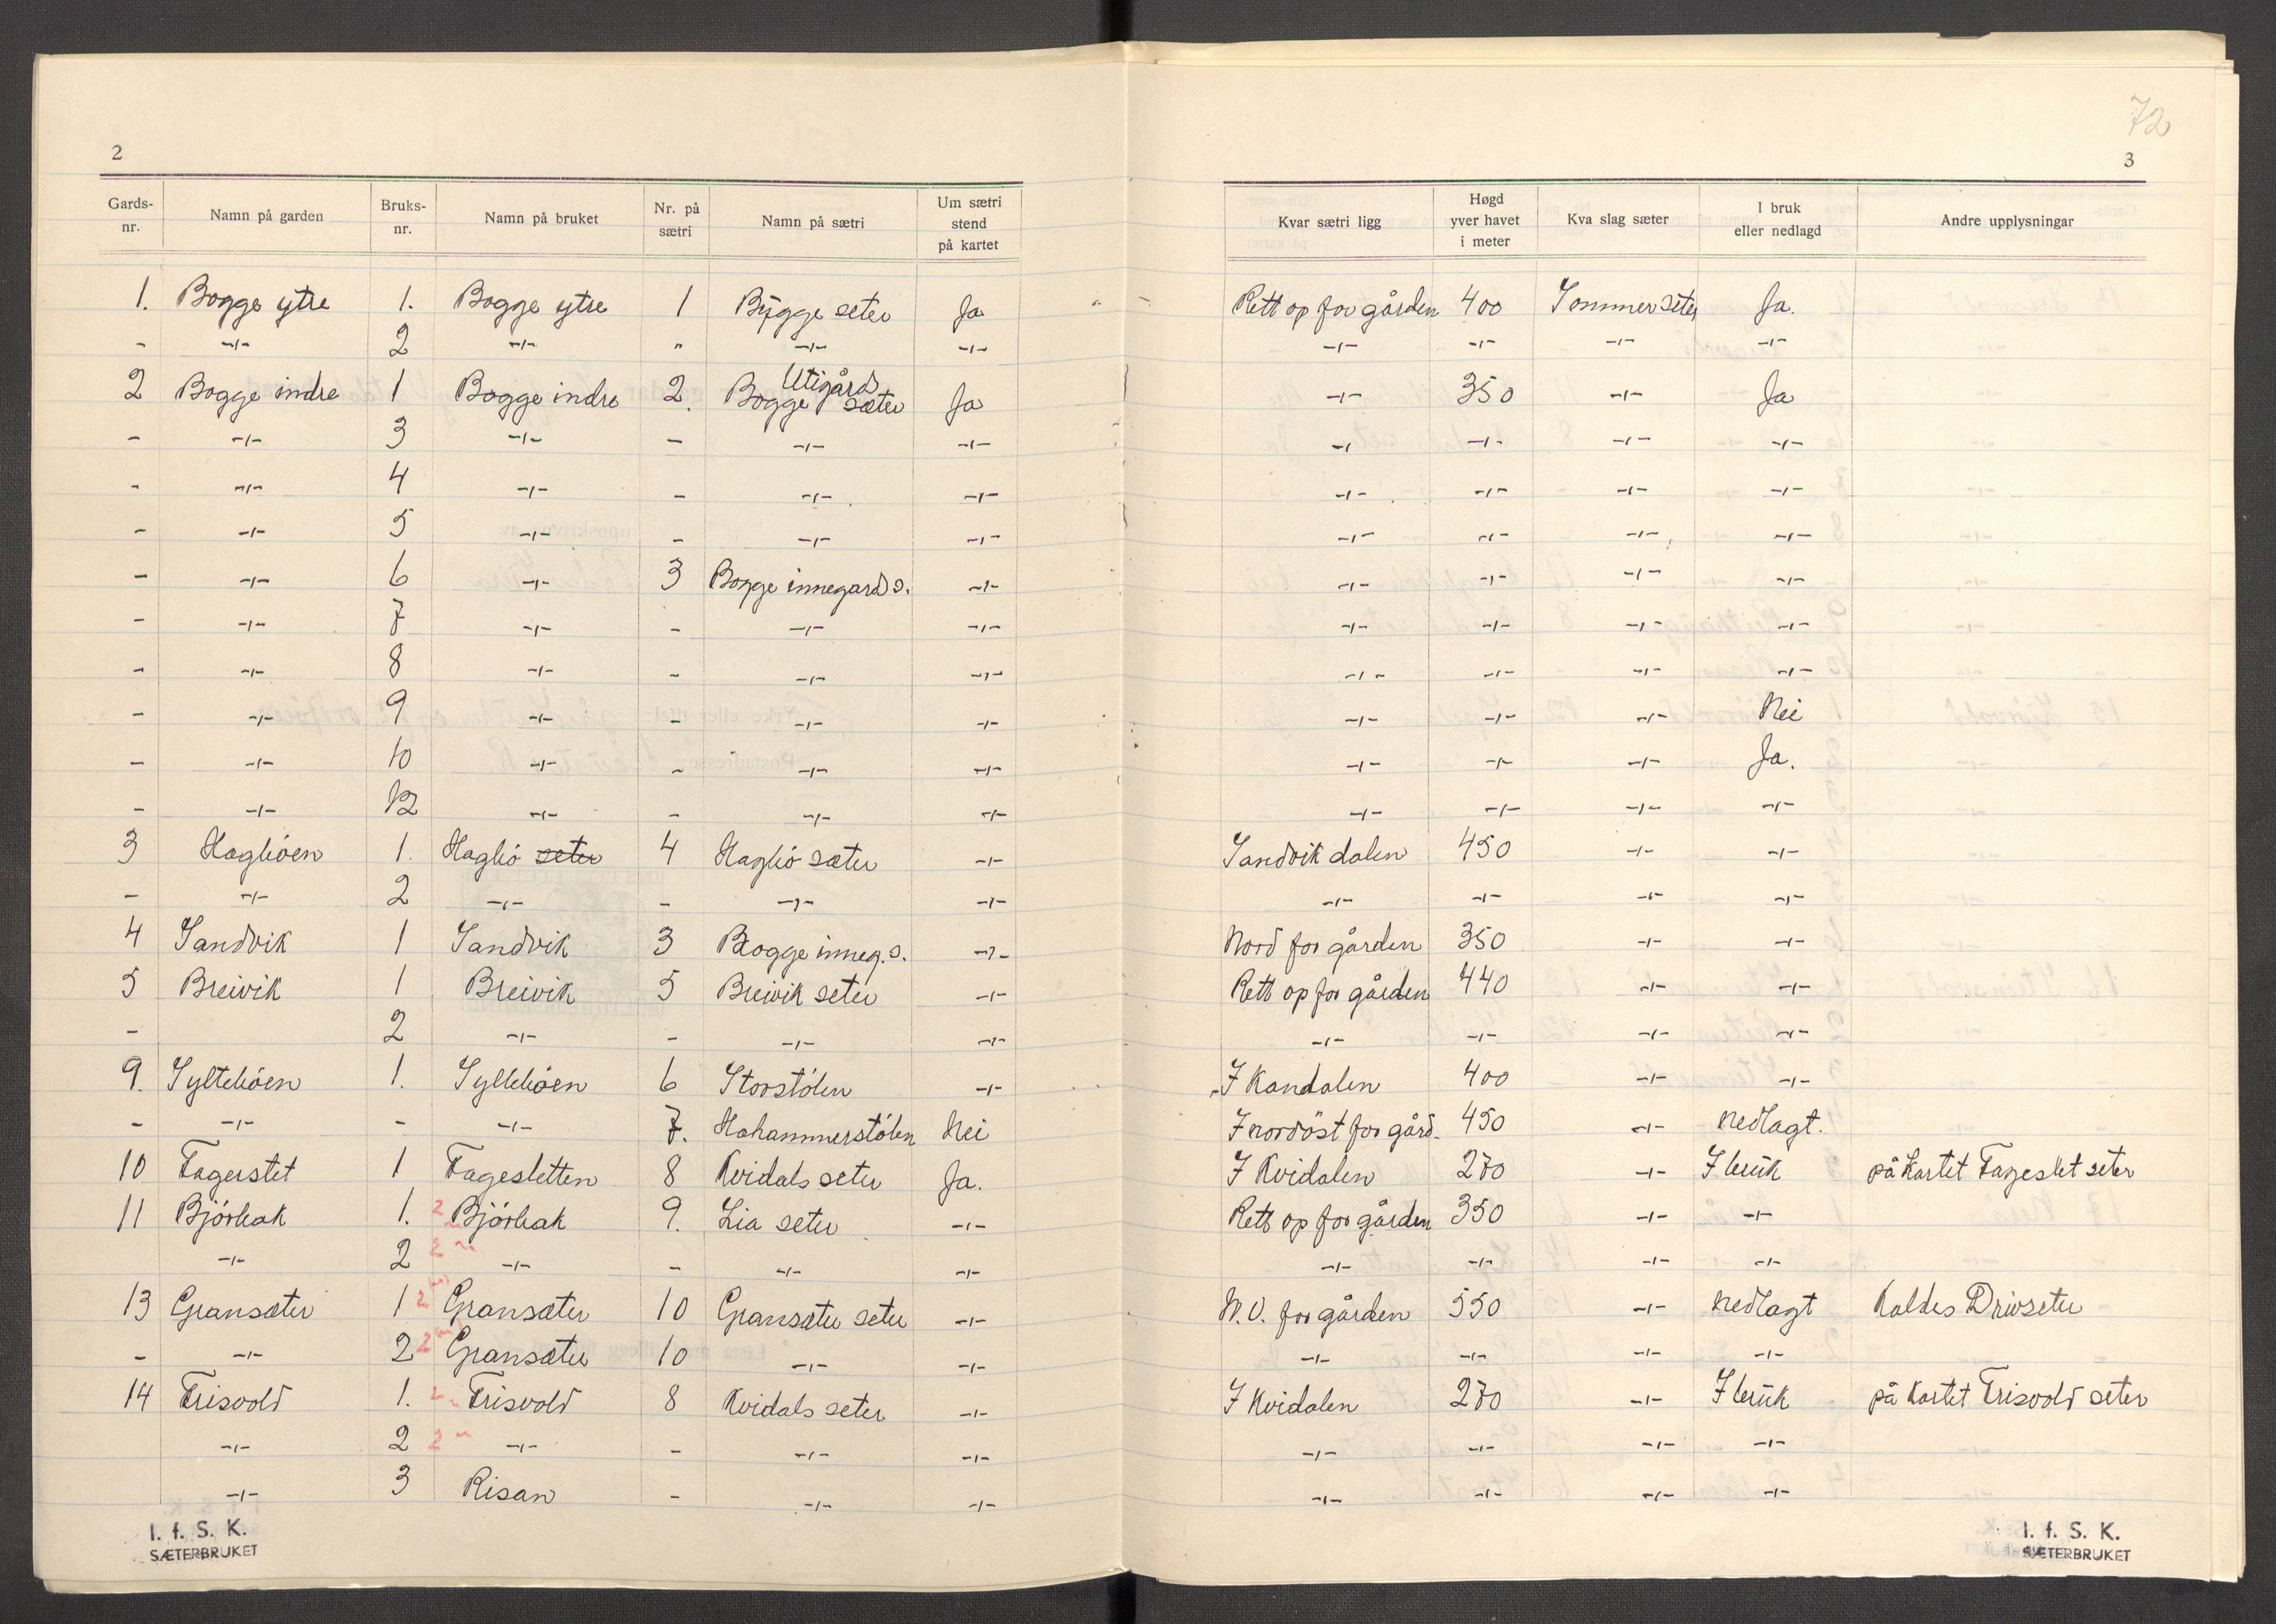 72
2
3
Gards-nr. | Namn på garden | Bruks-nr. | Namn på bruket | Nr. på sætri | Namn på sætri | Um sætri stend på kartet | Kvar sætri ligg | Høgd yver havet i meter | Kva slag sæter | I bruk eller nedlagd | Andre upplysningar
1. | Bogge ytre | 1. | Bogge ytre | 1 | Bygge seter | Ja | Rett op for gården | 400 | Sommerseter | Ja.
- | -"- | 2 | -"- | " | -"- | -"- | -"- | -"- | -"- | -"-
2 | Bogge indre | 1 | Bogge indre | 2. | Bogge Utigårds sæter | Ja | -"- | 350 | -"- | Ja
- | -"- | 3 | -"- | - | -"- | -"- | -"- | -"- | -"- | -"-
- | -"- | 4 | -"- | - | -"- | -"- | -"- | -"- | -"- | -"-
- | -"- | 5 | -"- | - | -"- | -"- | -"- | -"- | -"- | -"-
- | -"- | 6 | -"- | 3 | Bogge innegards s. | -"- | -"- | -"- | -"- | -"-
- | -"- | 7 | -"- | - | -"- | -"- | -"- | -"- | -"- | -"-
- | -"- | 8 | -"- | - | -"- | -"- | -"- | -"- | -"- | -"-
- | -"- | 9 | -"- | - | -"- | -"- | -"- | -"- | -"- | Nei
- | -"- | 10 | -"- | - | -"- | -"- | -"- | -"- | -"- | Ja.
- | -"- | 12 | -"- | - | -"- | -"- | -"- | -"- | -"- | -"-
3 | Hagliöen | 1. | Hagliö seter | 4 | Hagliö sæter | -"- | Sandvikdalen | 450 | -"- | -"-
- | -"- | 2 | -"- | - | -"- | -"- | -"- | -"- | -"- | -"-
4 | Sandvik | 1 | Sandvik | 3 | Bogge inneg. s. | -"- | Nord for gården | 350 | -"- | -"-
5 | Breivik | 1 | Breivik | 5 | Breivik seter | -"- | Rett op for gården | 440 | -"- | -"-
- | 2 | -"- | - | -"- | -"- | -"- | -"- | -"- | -"-
9. | Sylteböen | 1. | Sylteböen | 6 | Storstölen | -"- | I Kandalen | 400 | -"- | -"-
- | -"- | - | -"- | 7. | Hohammerstölen | Nei | I nordöst for gård. | 450 | -"- | nedlagt.
10 | Fagerslet | 1 | Fagesletten | 8 | Kvidals seter | Ja. | I Kvidalen | 270 | -"- | I bruk | på kartet Fageslet seter
11 | Björbak | 1. | Björbak | 9. | Lia seter | -"- | Rett op for gården | 350 | -"- | -"-
-"- | 2 | -"- | - | -"- | -"- | -"- | -"- | -"- | -"-
13 | Gransæter | 1 | Gransæter | 10 | Gransæter seter | -"- | N.O. for gården | 550 | -"- | nedlagt | Kaldes Drivseter
- | -"- | 2 | Gransæter | 10 | -"- | -"- | -"- | -"- | -"- | -"-
14 | Frisvold | 1. | Frisvold | 8 | Kvidals seter | -"- | I Kvidalen | 270 | -"- | I bruk | på kartet Frisvold seter
-"- | 2 | -"- | - | -"- | -"- | -"- | -"- | -"- | -"-
-"- | 3 | Risan | - | -"- | -"- | -"- | -"- | -"- | -"-
I. f. S. K.
SÆTERBRUKET
I. f. S. K.
SÆTERBRUKET